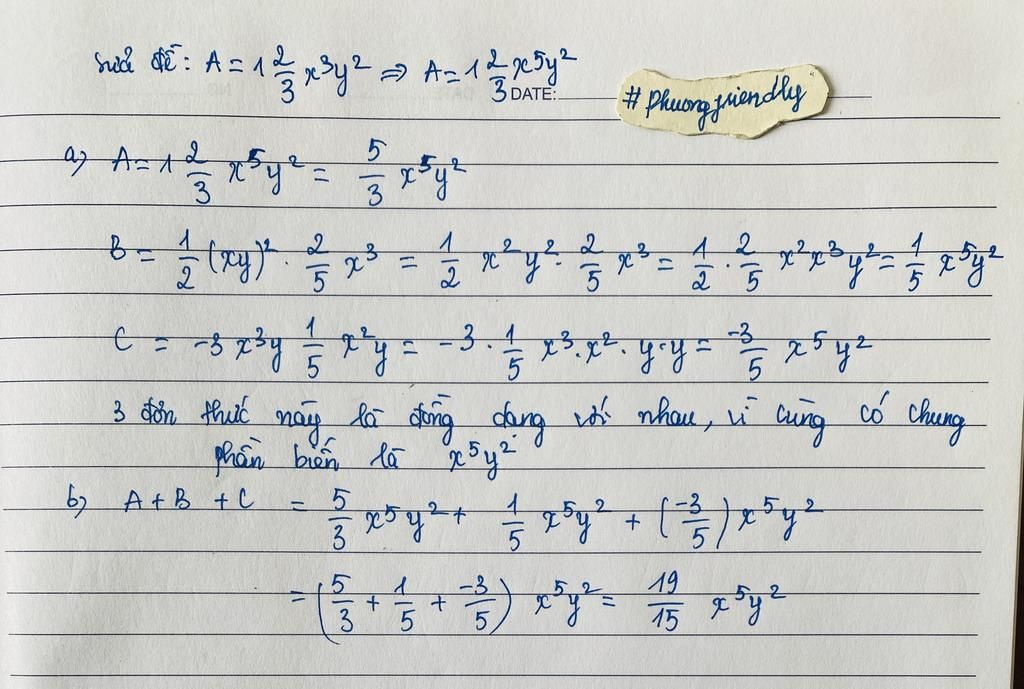 Sửa đề: A = 1 2/3 x³y² => A = 1 2/3 x⁵y²
DATE:
#Phuongfriendly
a) A = 1 2/3 x⁵y² = 5/3 x⁵y²
B = 1/2 (xy)² . 2/5 x³ = 1/2 x²y² . 2/5 x³ = 1/2 . 2/5 x²x³y² = 1/5 x⁵y²
C = -3x³y 1/5 x²y = -3 . 1/5 x³.x².y.y = -3/5 x⁵y²
3 đơn thức này là đồng dạng với nhau, vì cùng có chung
phần biến là x⁵y²
b) A + B + C = 5/3 x⁵y² + 1/5 x⁵y² + (-3/5) x⁵y²
= (5/3 + 1/5 + -3/5) x⁵y² = 19/15 x⁵y²